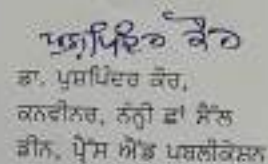 ਪੁਸ਼ਪਿੰਦਰ ਕੌਰ
ਡਾ. ਪੁਸ਼ਪਿੰਦਰ ਕੌਰ,
ਕਨਵੀਨਰ, ਨੰਨ੍ਹੀ ਛਾਂ ਸੈੱਲ
ਡੀਨ, ਪ੍ਰੈੱਸ ਐਂਡ ਪਬਲੀਕੇਸ਼ਨ